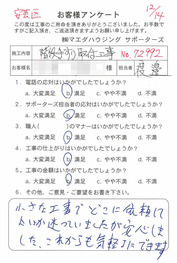 安芸区
12/14
お客様アンケート
この度は工事のご用命を頂きありがとうございました。お手数で
すがご記入頂き、ご返送頂きますようお願い申し上げます。
㈱マエダハウジング サポーターズ
施工内容 階段手すり取付工事 No.72992
お名前 様 担当 渡邉
1. 電話の応対はいかがでしたでしょうか？
a. 大変満足 b. 満足 c. やや不満 d. 不満
2. サポーターズ担当者の応対はいかがでしたでしょうか？
a. 大変満足 b. 満足 c. やや不満 d. 不満
3. 職人( )のマナーはいかがでしたでしょうか？
a. 大変満足 b. 満足 c. やや不満 d. 不満
4. 工事の仕上がりはいかがでしたでしょうか？
a. 大変満足 b. 満足 c. やや不満 d. 不満
5. 工事の金額はいかがでしたでしょうか？
a. 大変満足 b. 満足 c. やや不満 d. 不満
6. その他、ご意見・ご要望をお書き下さい。
小さな工事でどこに依頼して
よいか迷っていましたが 安心しま
した。これからも気軽に